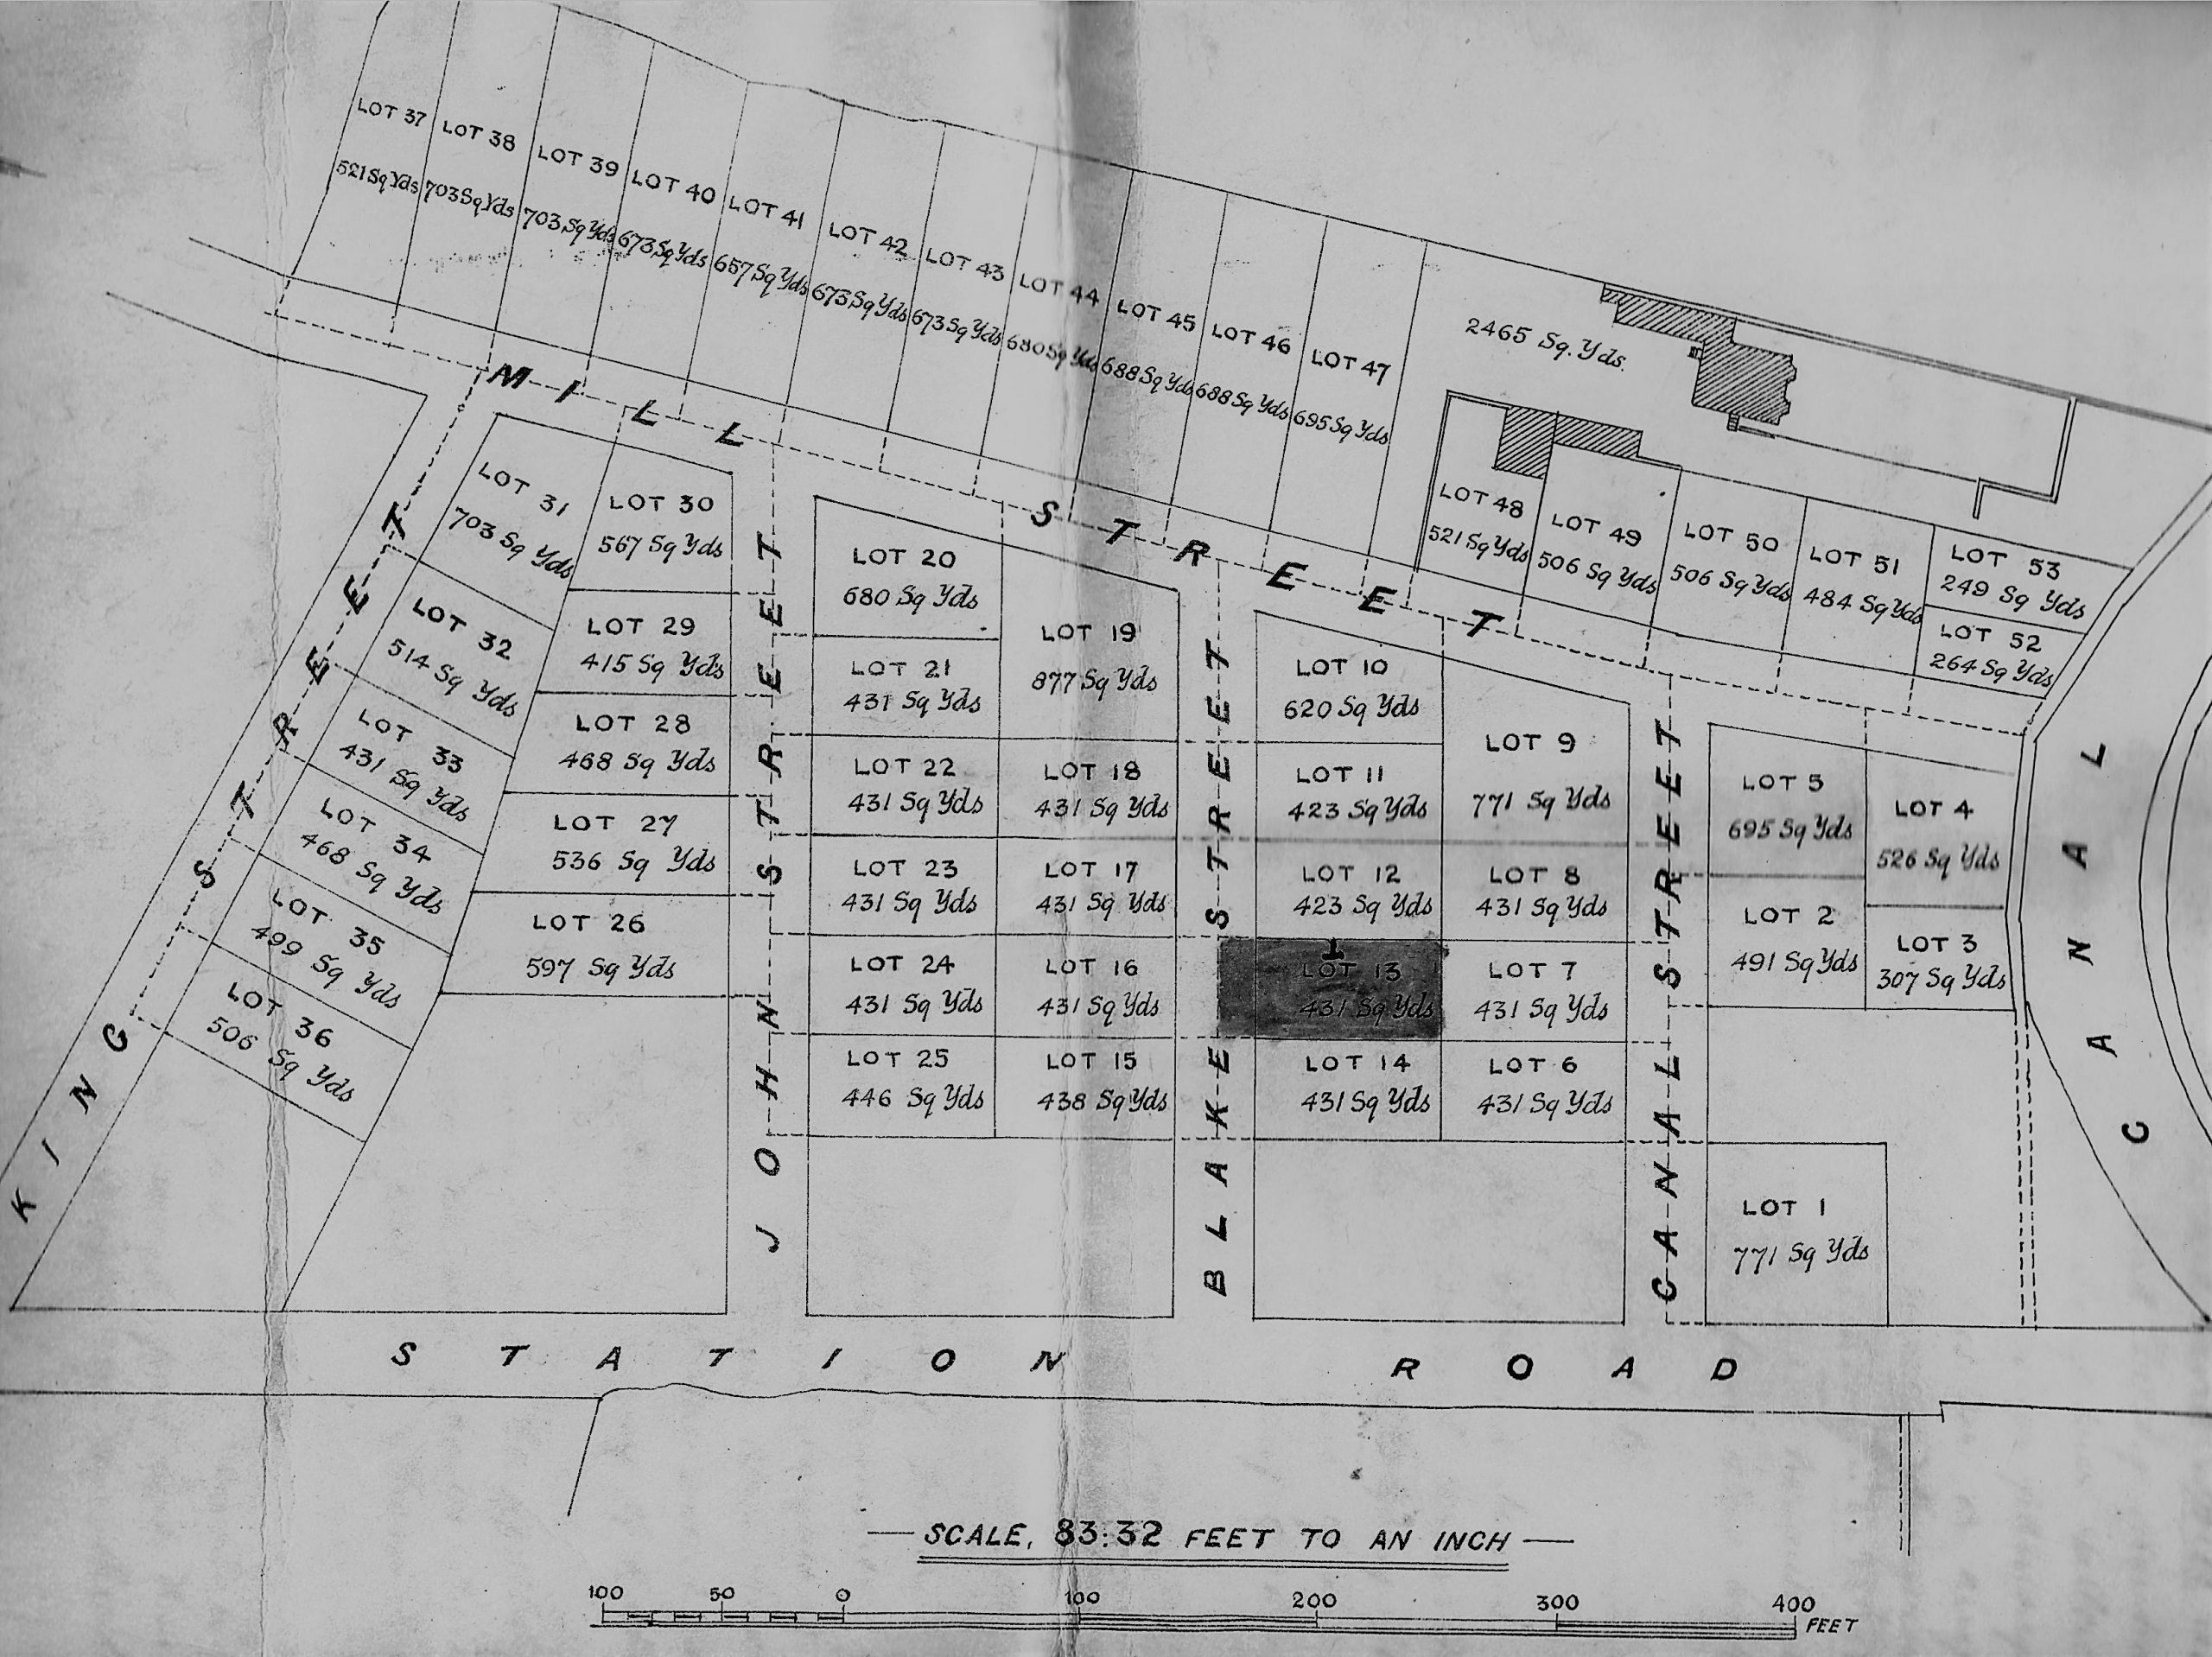 LOT 37
521 Sq Yds
LOT 38
703 Sq Yds
LOT 39
703 Sq Yds
LOT 40
673 Sq Yds
LOT 41
657 Sq Yds
LOT 42
673 Sq Yds
LOT 43
673 Sq Yds
LOT 44
680 Sq Yds
LOT 45
688 Sq Yds
LOT 46
688 Sq Yds
LOT 47
695 Sq Yds
2465 Sq. Yds.
LOT 48
521 Sq Yds
LOT 49
506 Sq Yds
LOT 50
506 Sq Yds
LOT 51
484 Sq Yds
LOT 53
249 Sq Yds
LOT 52
264 Sq Yds
MILL STREET
LOT 31
703 Sq Yds
LOT 30
567 Sq Yds
LOT 32
514 Sq Yds
LOT 29
415 Sq Yds
LOT 33
431 Sq Yds
LOT 28
468 Sq Yds
LOT 34
468 Sq Yds
LOT 27
536 Sq Yds
LOT 35
499 Sq Yds
LOT 26
597 Sq Yds
LOT 36
506 Sq Yds
KING STREET
JOHN STREET
LOT 20
680 Sq Yds
LOT 19
877 Sq Yds
LOT 21
431 Sq Yds
LOT 22
431 Sq Yds
LOT 18
431 Sq Yds
LOT 23
431 Sq Yds
LOT 17
431 Sq Yds
LOT 24
431 Sq Yds
LOT 16
431 Sq Yds
LOT 25
446 Sq Yds
LOT 15
438 Sq Yds
BLAKE STREET
LOT 10
620 Sq Yds
LOT 9
771 Sq Yds
LOT 11
423 Sq Yds
LOT 12
423 Sq Yds
LOT 8
431 Sq Yds
1
LOT 13
431 Sq Yds
LOT 7
431 Sq Yds
LOT 14
431 Sq Yds
LOT 6
431 Sq Yds
CANAL STREET
LOT 5
695 Sq Yds
LOT 4
526 Sq Yds
LOT 2
491 Sq Yds
LOT 3
307 Sq Yds
LOT 1
771 Sq Yds
CANAL
STATION ROAD
SCALE, 83.32 FEET TO AN INCH
100 50 0 100 200 300 400
FEET